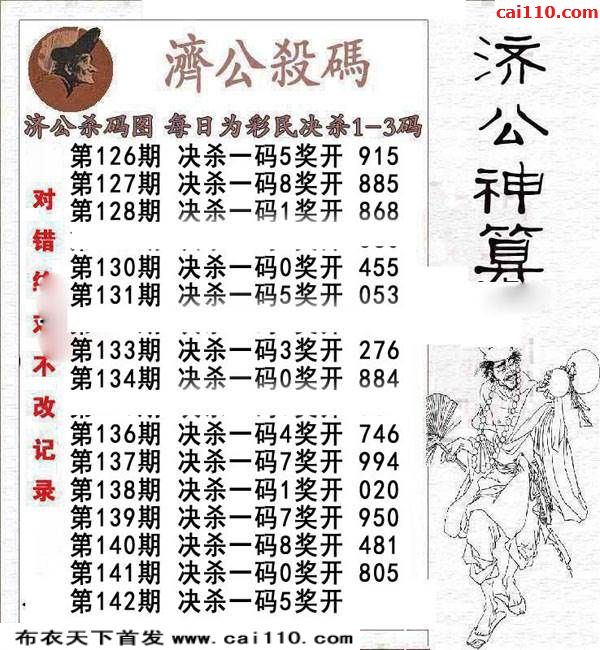 cai110.com
濟公殺碼
济公神算
济公杀码图 每日为彩民决杀1-3码
第126期 决杀一码5奖开 915
第127期 决杀一码8奖开 885
第128期 决杀一码1奖开 868
第130期 决杀一码0奖开 455
第131期 决杀一码5奖开 053
第133期 决杀一码3奖开 276
第134期 决杀一码0奖开 884
第136期 决杀一码4奖开 746
第137期 决杀一码7奖开 994
第138期 决杀一码1奖开 020
第139期 决杀一码7奖开 950
第140期 决杀一码8奖开 481
第141期 决杀一码0奖开 805
第142期 决杀一码5奖开
对错 不改记录
布衣天下首发 www.cai110.com